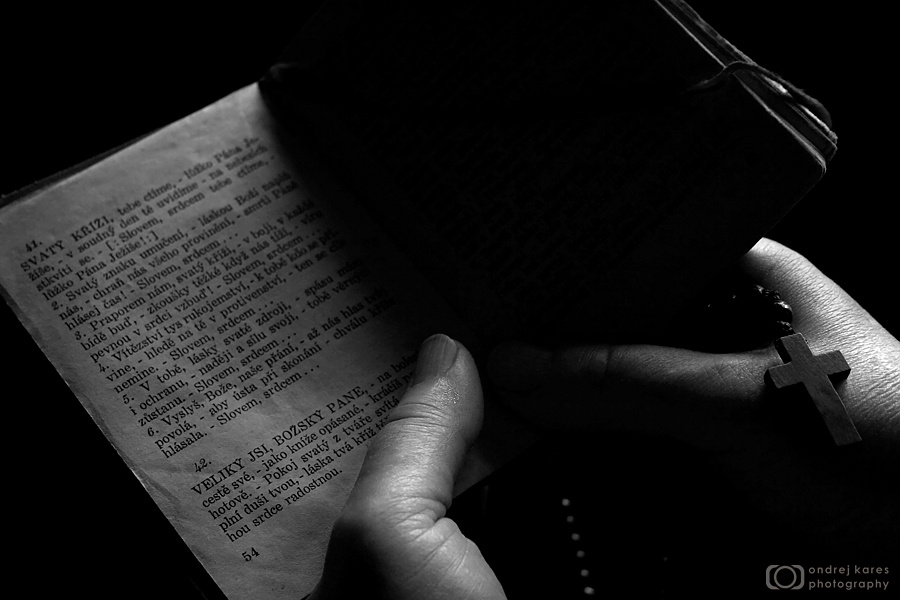 41.
SVATÝ KŘÍŽI, tebe ctíme, - lůžko Pána Je-
žíše, - v soudný den tě uvidíme - na nebesích
stkvíti se. [: Slovem, srdcem tebe ctíme, -
lůžko Pána Ježíše! :]
2. Svatý znaku umučení, - láskou Boží
nás, - chraň nás všeho provinění, - smrti Páně
hlásej čas! - Slovem, srdcem . . .
3. Praporem nám, svatý kříži, - v boji, v každé
bídě buď, - zkoušky těžké když nás tíží, - víru
pevnou v srdci vzbuď! - Slovem, srdcem . . .
4. Vítězství tys rukojemství, - k tobě kdo se
vine, - hledě na tě v protivenství, - ten se
nemine. - Slovem, srdcem . . .
5. V tobě, lásky svaté zdroji, - spásu
i ochranu, - naději a sílu svoji, - tobě
zůstanu. - Slovem, srdcem . . .
6. Vyslyš, Bože, naše přání, - až nás hlas
povolá, - aby ústa při skonání - chválu
hlásala. - Slovem, srdcem . . .
42.
VELIKÝ JSI, BOŽSKÝ PANE, - na
cestě své, - jako kníže opásané, - krášlí
hotově. - Pokoj svatý z tváře svítá
plní duši tvou, - láska tvá kříž
hou srdce radostnou.
54
ondrej kares
photography